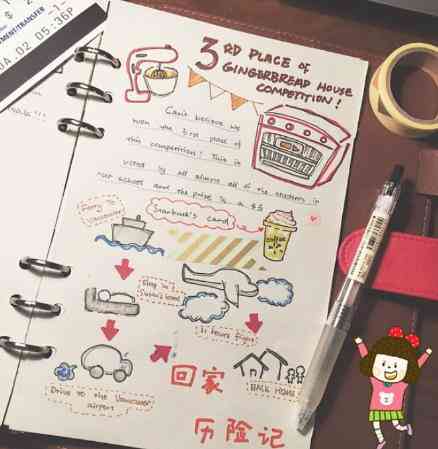 $
MENT/TRANSFER
02 05:36P
3RD PLACE OF
GINGERBREAD HOUSE
COMPETITION!
Can't believe we
won the 3rd place of
this competition! This is
voted by all almost all of the students in
our school and the prize is a $5
Starbuck's Card
Ferry to
Vancouver
coffee
Stay in
hotel
11 hours flight
回家
BACK HOME
Drive to the Vancouver
airport!
历险记